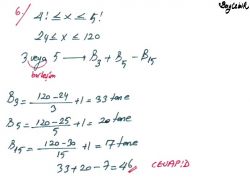 6.) 4! ≤ x ≤ 5!
24 ≤ x ≤ 120
3 veya 5 → B₃ + B₅ - B₁₅
birleşim
B₃ = 120-24/3 + 1 = 33 tane
B₅ = 120-25/5 + 1 = 20 tane
B₁₅ = 120-30/15 + 1 = 17 tane
33 + 20 - 7 = 46
CEVAP: D